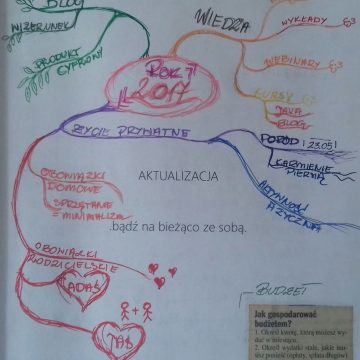 BLOG
WIZERUNEK
PRODUKT
CYFROWY
WIEDZA
WYKŁADY
WEBINARY
KURSY
JAVA
BLOG
ROK
2017
ŻYCIE PRYWATNE
PORÓD | 23.05 |
KARMIENIE
PIERSIĄ
AKTYWNOŚĆ
FIZYCZNA
OBOWIĄZKI
DOMOWE
SPRZĄTANIE
= MINIMALIZM
AKTUALIZACJA
.bądź na bieżąco ze sobą.
OBOWIĄZKI
RODZICIELSKIE
ADAŚ
BUDŻET
Jak gospodarować
budżetem?
1. Określ kwotę, którą możesz wy-
dać w miesiącu.
2. Określ wydatki stałe, jakie mu-
sisz ponieść (opłaty, spłata długów)